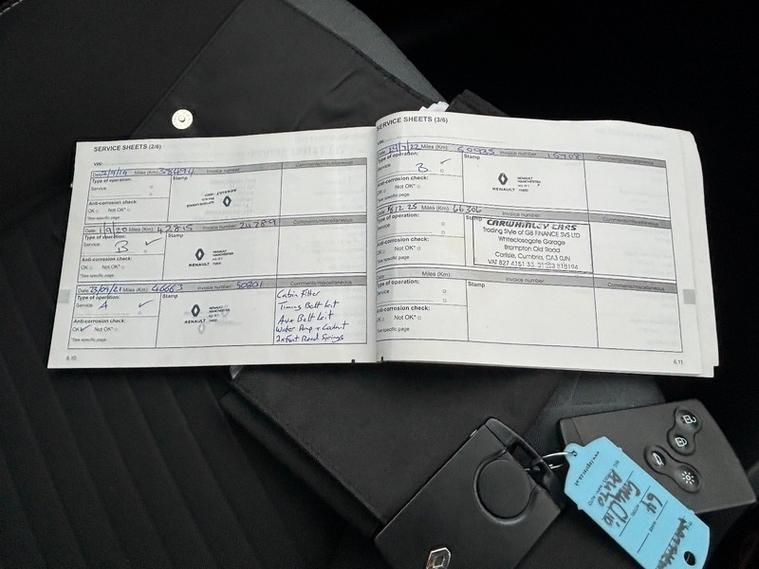 SERVICE SHEETS (2/6)
VIN:
Date Miles (Km) 38494 Invoice number Comments/miscellaneous
Type of operation: Stamp
Service
Anti-corrosion check:
OK Not OK*
*See specific page
RENAULT
Date 1/9/20 Miles (Km) 42815 Invoice number 24789 Comments/miscellaneous
Type of operation: Stamp
Service B
RENAULT MANCHESTER
Anti-corrosion check:
OK Not OK*
*See specific page
Date 23/09/21 Miles (Km) 46663 Invoice number Comments/miscellaneous
Type of operation: Stamp
Service A
RENAULT MANCHESTER
Anti-corrosion check:
OK Not OK*
*See specific page
Cabin Filter
Timing Belt kit
Aux Belt kit
Water Pump + Coolant
2x Front Road Springs
6.10
SERVICE SHEETS (3/6)
Date /7/22 Miles (Km) 60935 Invoice number Comments/miscellaneous
Type of operation: Stamp
Service B
RENAULT MANCHESTER
Anti-corrosion check:
OK Not OK*
*See specific page
Date 12 25 Miles (Km) 66306 Invoice number Comments/miscellaneous
Type of operation: Stamp
Service
CARWHINLEY CARS
Trading Style of GB FINANCE SVS LTD
Whiteclosegate Garage
Brampton Old Road
Carlisle, Cumbria, CA3 0JN
VAT 827 4151 33
Anti-corrosion check:
OK Not OK*
*See specific page
Date Miles (Km) Invoice number Comments/miscellaneous
Type of operation: Stamp
Service
Anti-corrosion check:
OK Not OK*
*See specific page
6.11
64